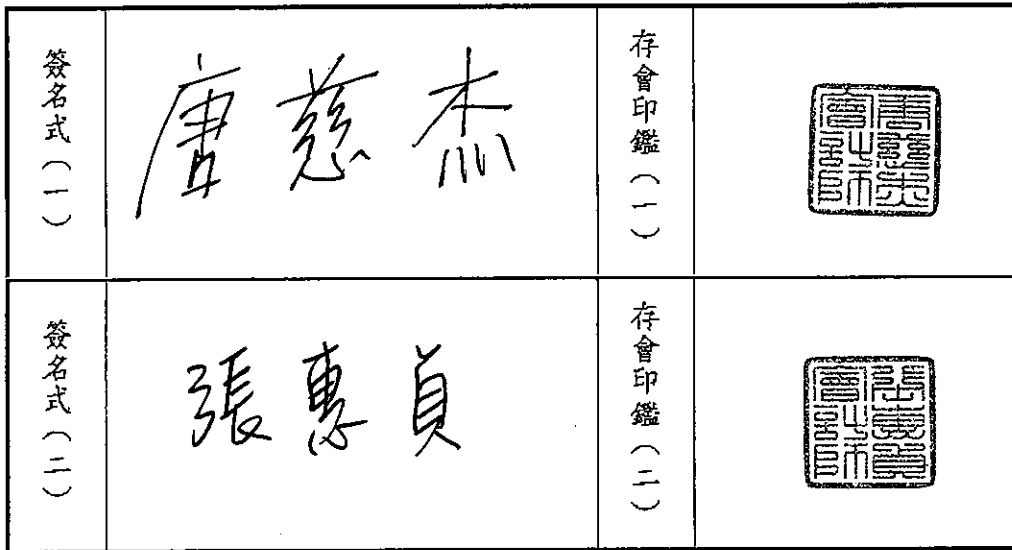 簽名式（一）
唐慈杰
存會印鑑（一）
唐慈杰會計師
簽名式（二）
張惠貞
存會印鑑（二）
張惠貞會計師